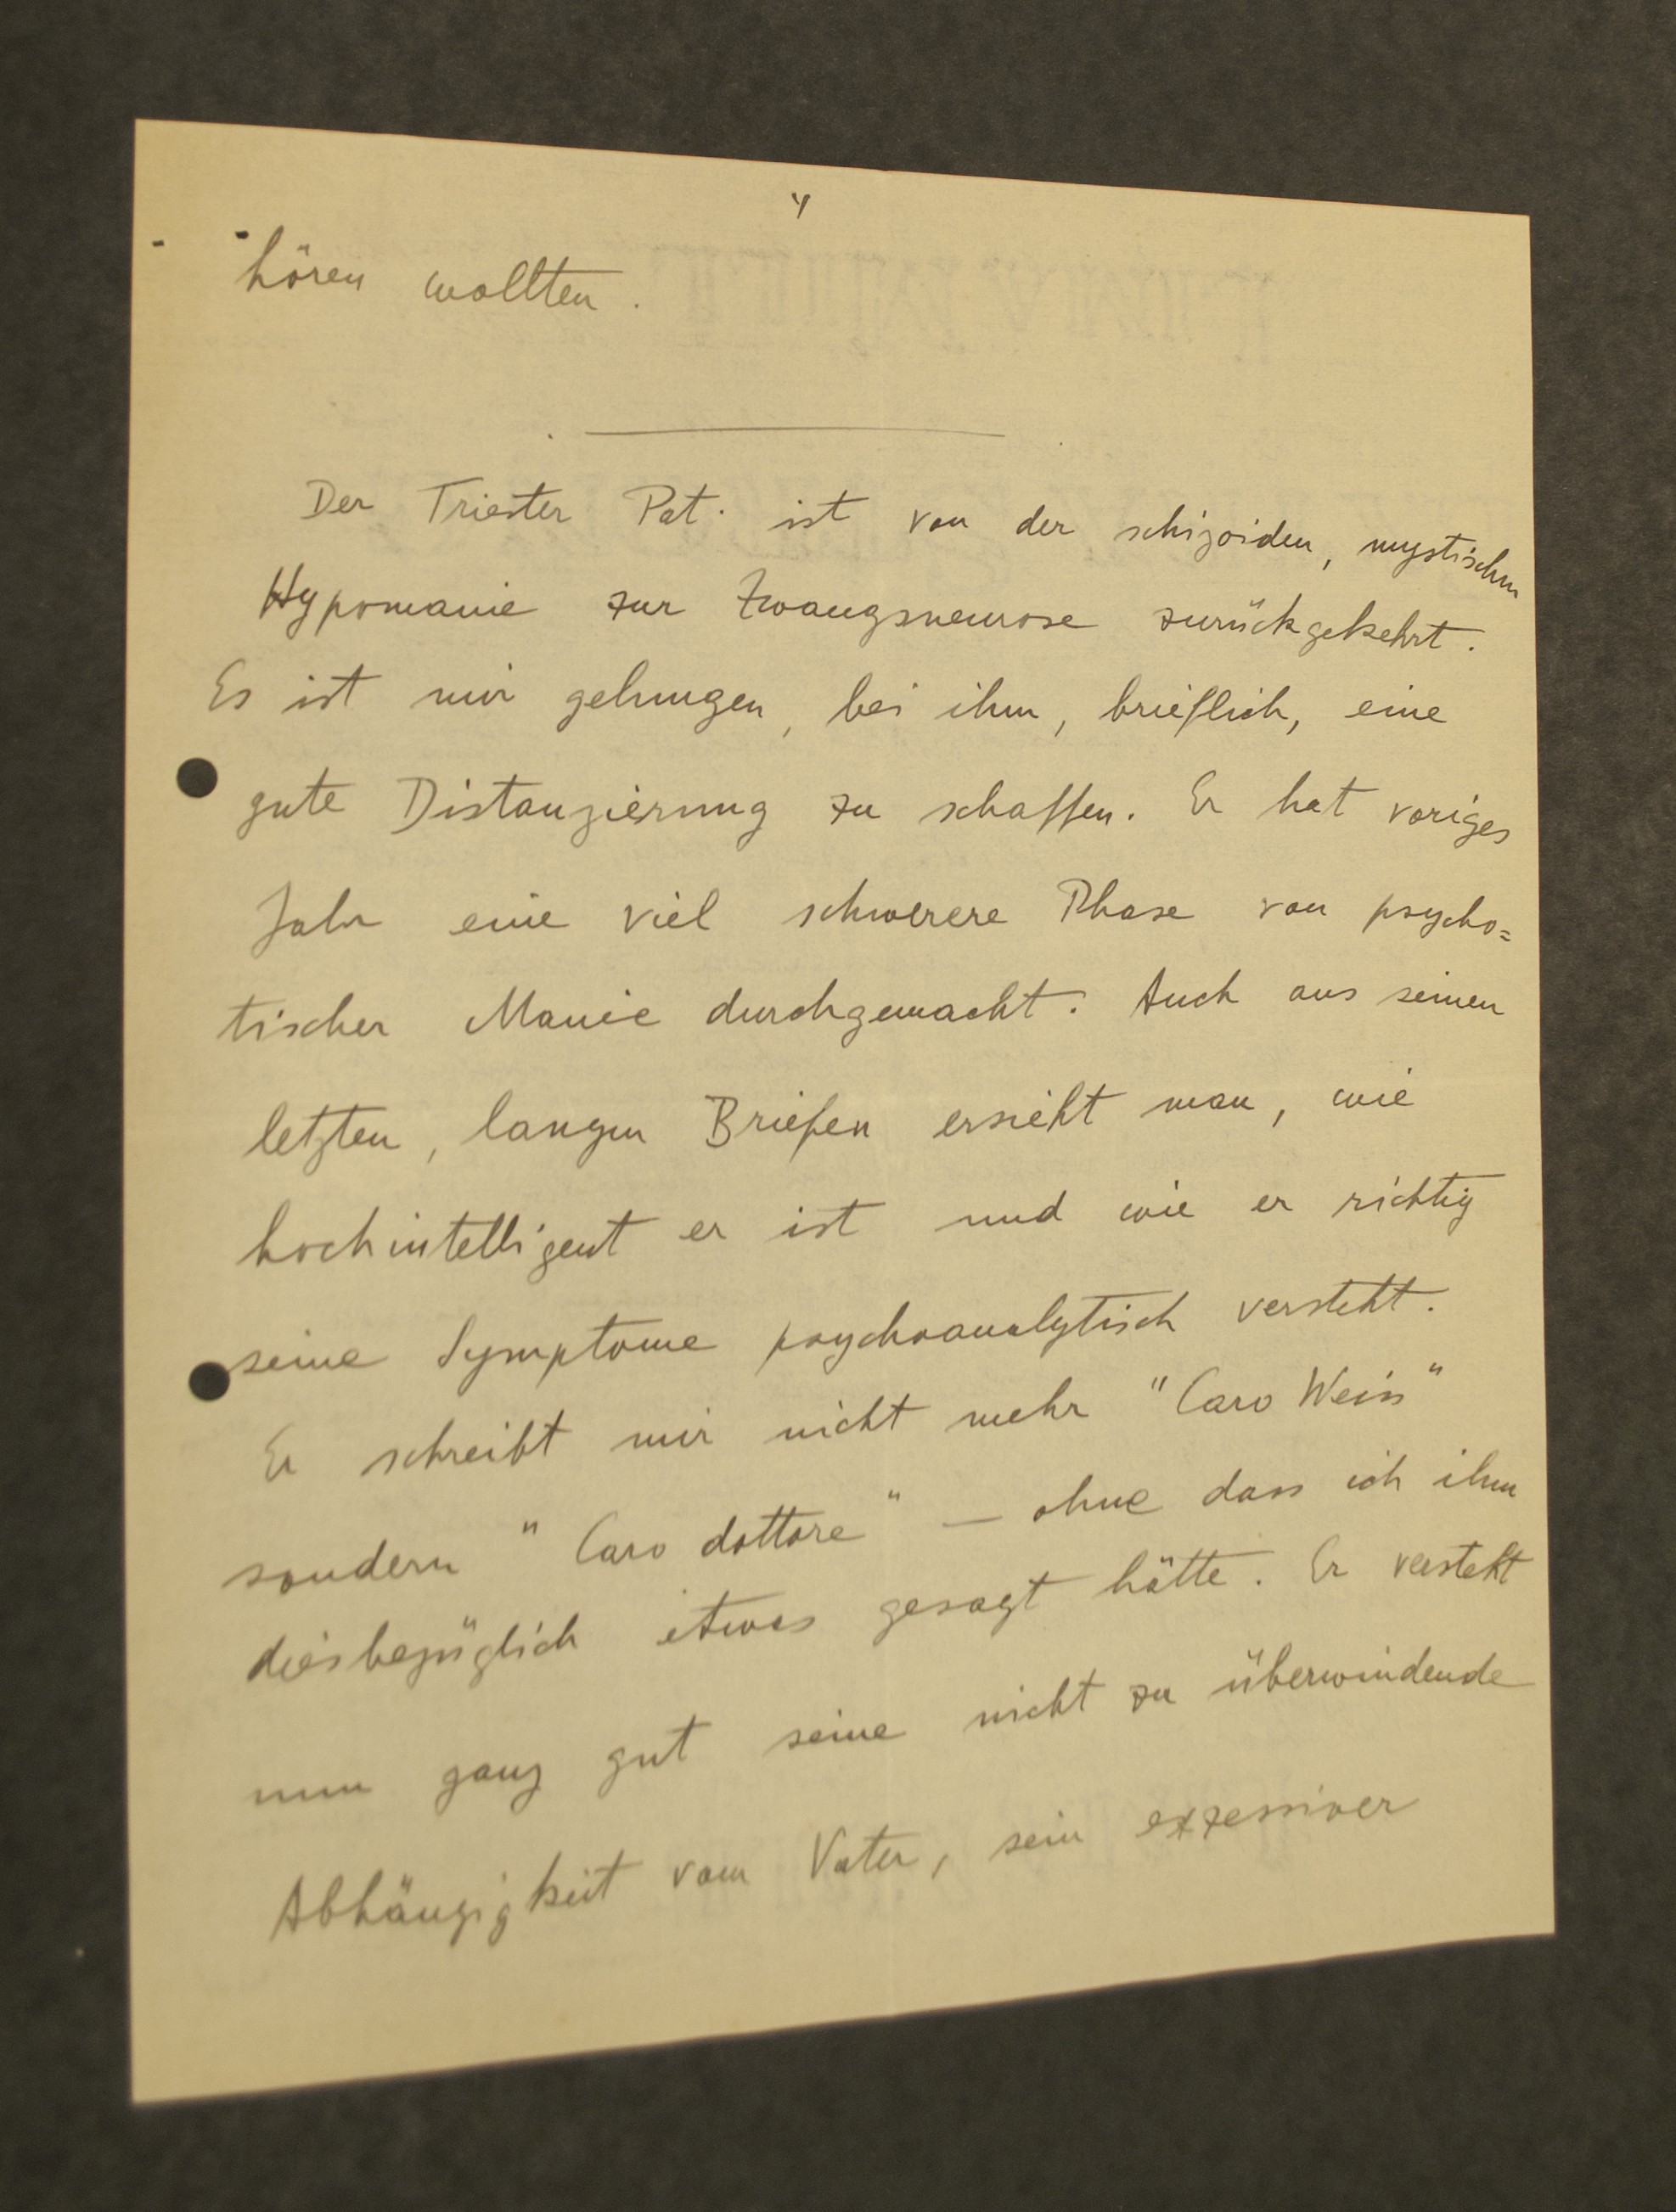 4
hören wollten.
Der Triester Pat. ist von der schizoiden, mystischen
Hypomanie zur Zwangsneurose zurückgekehrt.
Es ist mir gelungen, bei ihm, brieflich, eine
gute Distanzierung zu schaffen. Er hat voriges
Jahr eine viel schwerere Phase von psycho=
tischer Manie durchgemacht. Auch aus seinen
letzten, langen Briefen ersieht man, wie
hochintelligent er ist und wie er richtig
seine Symptome psychoanalytisch versteht.
Er schreibt mir nicht mehr "Caro Weiss"
sondern "Caro dottore" — ohne dass ich ihm
diesbezüglich etwas gesagt hätte. Er versteht
nun ganz gut seine nicht zu überwindende
Abhängigkeit vom Vater, sein exzessiver